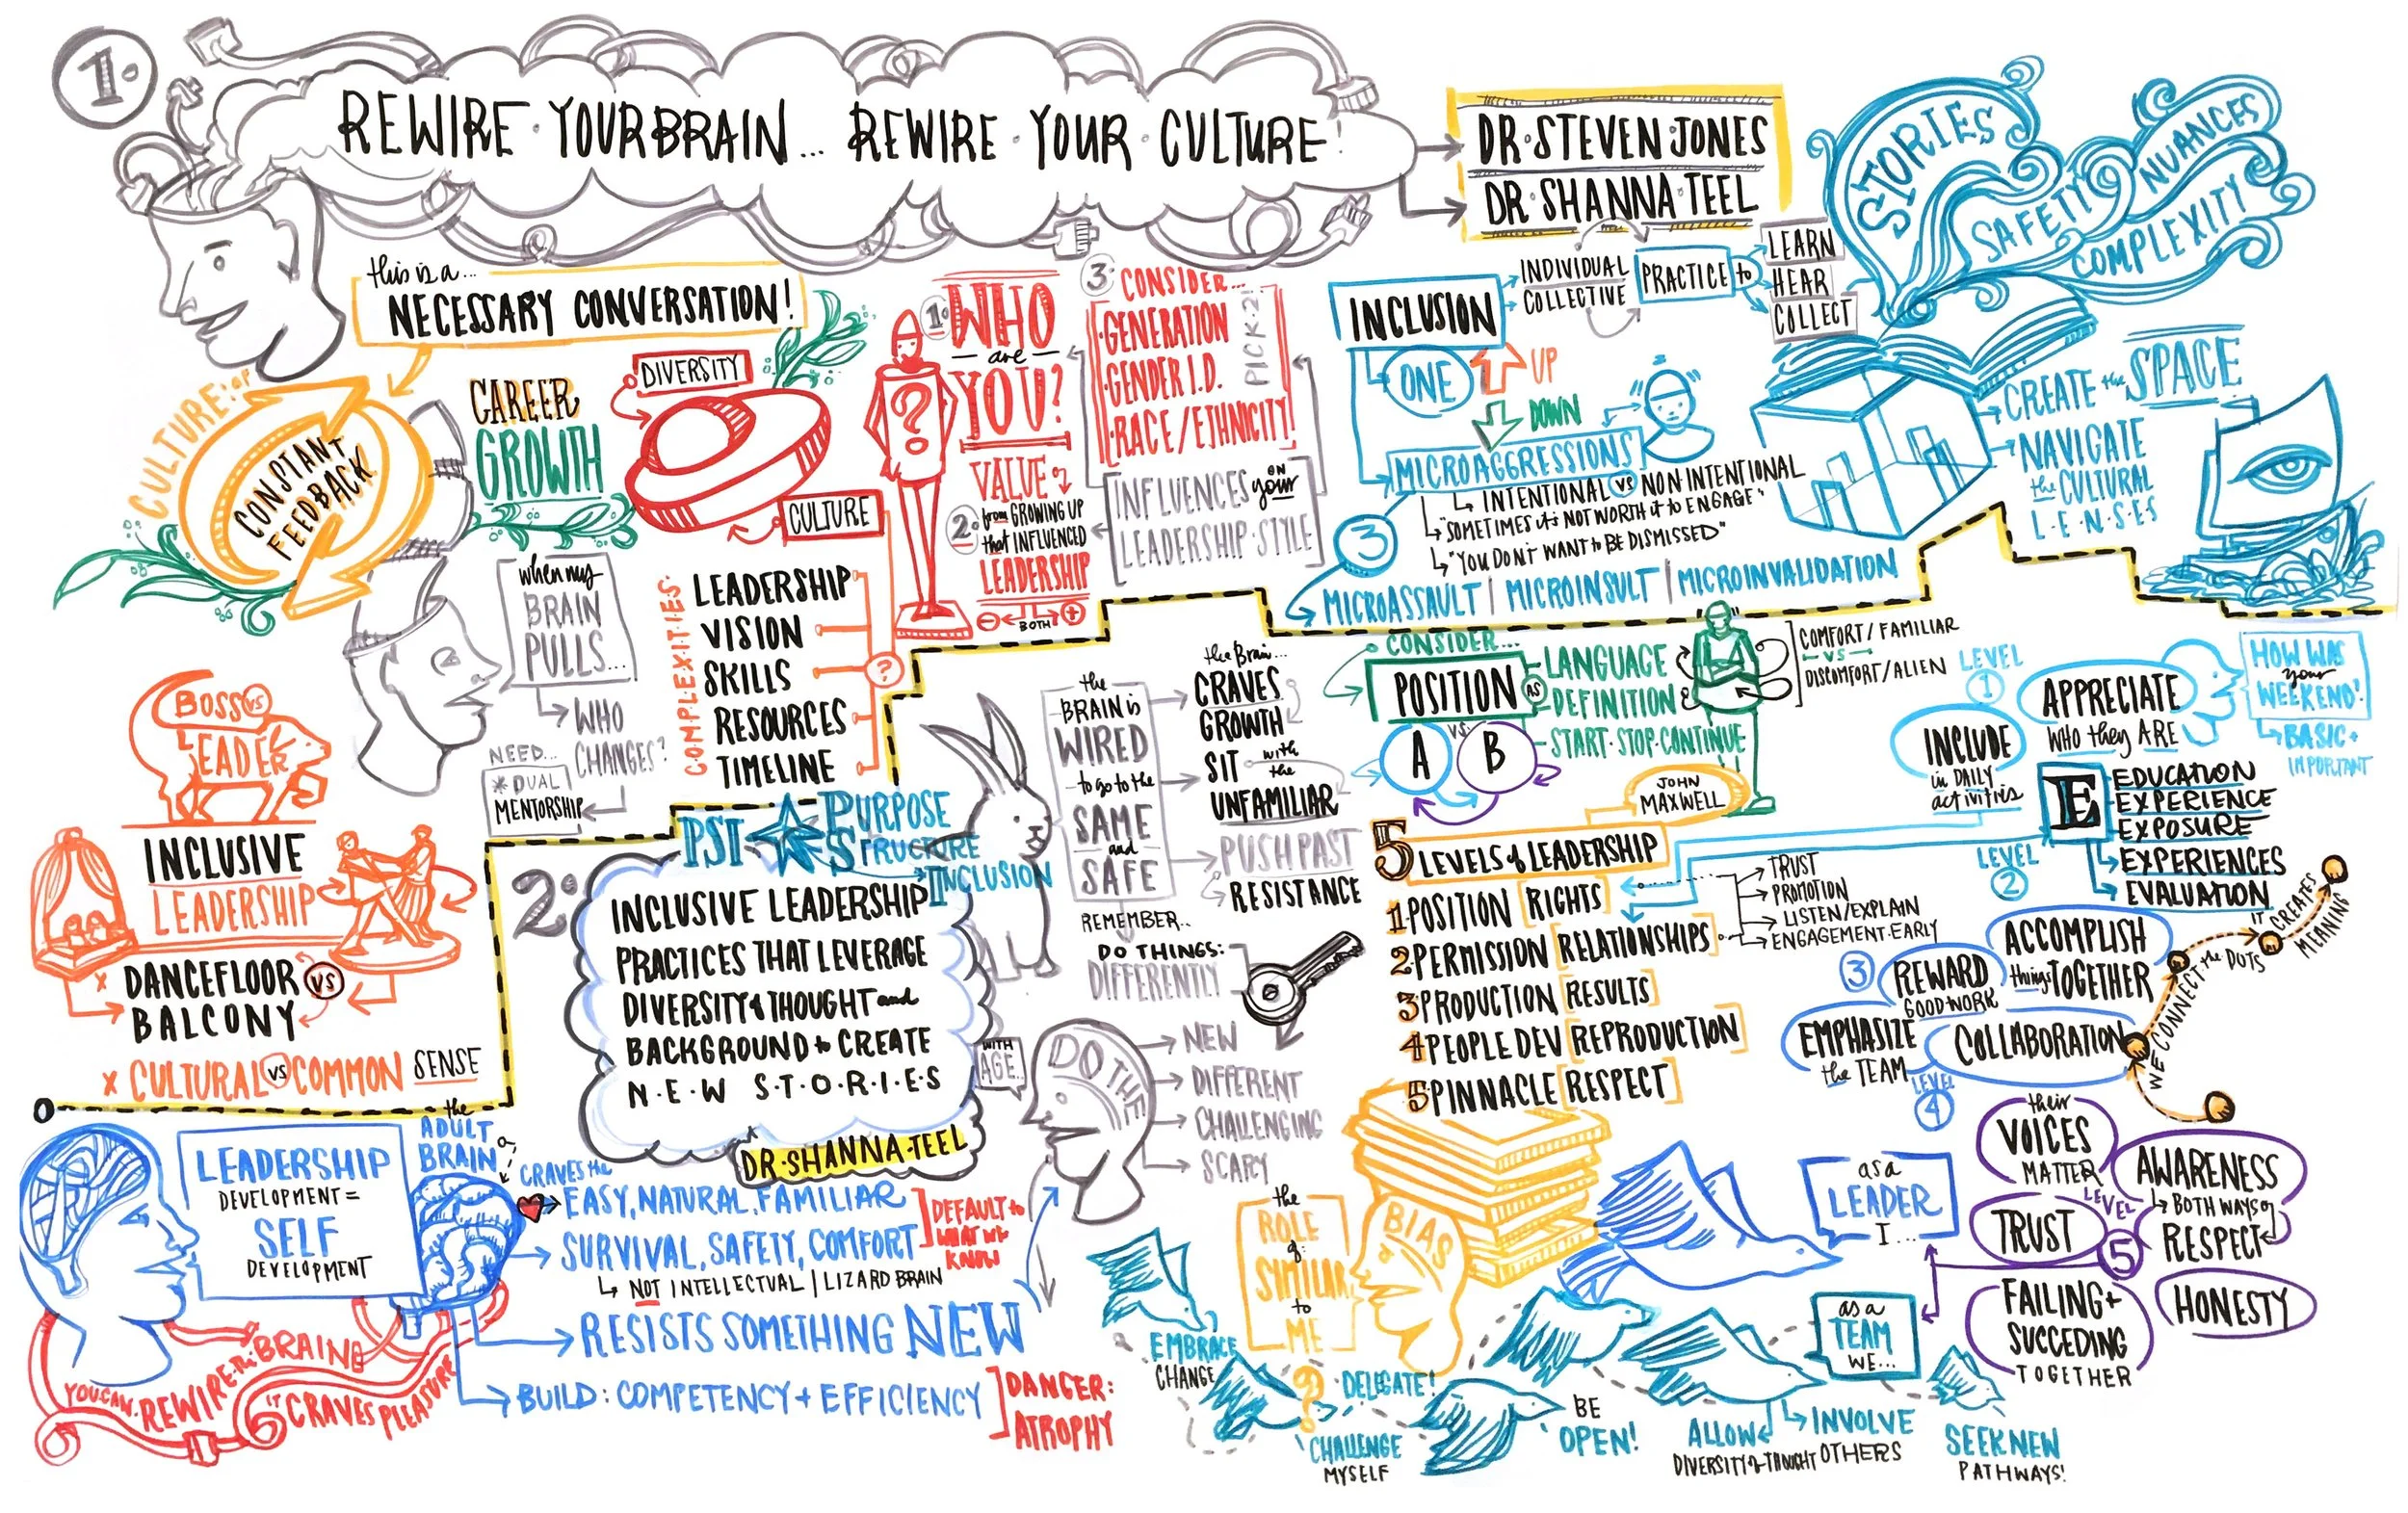 1.
REWIRE · YOUR BRAIN... REWIRE · YOUR · CULTURE!
DR · STEVEN · JONES
DR · SHANNA · TEEL
this is a...
NECESSARY CONVERSATION!
CULTURE: or
CONSTANT
FEEDBACK
CAREER
GROWTH
DIVERSITY
CULTURE
when my
BRAIN
PULLS...
WHO
CHANGES?
NEED...
* DUAL
MENTORSHIP
COMPLEXITIES:
LEADERSHIP
VISION
SKILLS
RESOURCES
TIMELINE
?
?
1.
WHO
are
YOU?
VALUE
2.
from GROWING UP
that INFLUENCED
LEADERSHIP
- BOTH +
3.
CONSIDER...
· GENERATION
· GENDER I.D.
· RACE/ETHNICITY!
PICK · 2!
INFLUENCES ON your
LEADERSHIP · STYLE
BOSS vs
LEADER
INCLUSIVE
LEADERSHIP
x DANCEFLOOR vs
BALCONY
x CULTURAL vs COMMON SENSE
INCLUSION
INDIVIDUAL
COLLECTIVE
PRACTICE to
LEARN
HEAR
COLLECT
ONE
UP
DOWN
MICROAGGRESSIONS
INTENTIONAL vs NON · INTENTIONAL
"SOMETIMES it's NOT WORTH it to ENGAGE"
"YOU DON't WANT to BE DISMISSED"
3
MICROASSAULT | MICROINSULT | MICROINVALIDATION
STORIES
SAFETY
NUANCES
COMPLEXITY
CREATE the SPACE
NAVIGATE
the CULTURAL
L·E·N·S·E·S
2.
PSI
PURPOSE
STRUCTURE
INCLUSION
INCLUSIVE LEADERSHIP
PRACTICES THAT LEVERAGE
DIVERSITY of THOUGHT and
BACKGROUND to CREATE
N·E·W S·T·O·R·I·E·S
DR · SHANNA · TEEL
the
BRAIN is
WIRED
to go to the
SAME
and
SAFE
the Brain...
CRAVES
GROWTH
SIT with
the
UNFAMILIAR
PUSH PAST
RESISTANCE
REMEMBER...
DO THINGS:
DIFFERENTLY
WITH
AGE...
DO THE
NEW
DIFFERENT
CHALLENGING
SCARY
LEADERSHIP
DEVELOPMENT =
SELF
DEVELOPMENT
the
ADULT
BRAIN
CRAVES the
EASY, NATURAL, FAMILIAR
SURVIVAL, SAFETY, COMFORT
DEFAULT to
WHAT WE
KNOW
NOT INTELLECTUAL | LIZARD BRAIN
RESISTS SOMETHING NEW
BUILD: COMPETENCY + EFFICIENCY
DANGER:
ATROPHY
YOU CAN · REWIRE · the BRAIN
IT CRAVES PLEASURE
CONSIDER...
POSITION AS
LANGUAGE
DEFINITION
START · STOP · CONTINUE
A VS. B
COMFORT / FAMILIAR
VS
DISCOMFORT / ALIEN
JOHN
MAXWELL
5 LEVELS of LEADERSHIP
1 POSITION [RIGHTS]
2 PERMISSION [RELATIONSHIPS]
3 PRODUCTION [RESULTS]
4 PEOPLE DEV [REPRODUCTION]
5 PINNACLE [RESPECT]
TRUST
PROMOTION
LISTEN/EXPLAIN
ENGAGEMENT · EARLY
LEVEL
1
APPRECIATE
WHO they ARE
INCLUDE
in DAILY
activities
HOW WAS
your
WEEKEND?
BASIC +
IMPORTANT
E
EDUCATION
EXPERIENCE
EXPOSURE
EXPERIENCES
EVALUATION
LEVEL
2
ACCOMPLISH
things TOGETHER
3
REWARD
GOOD WORK
EMPHASIZE
the TEAM
COLLABORATION
LEVEL
4
WE CONNECT the DOTS
IT CREATES
MEANING
their
VOICES
MATTER
AWARENESS
BOTH WAYS of
RESPECT
LEVEL
5
TRUST
FAILING +
SUCCEDING
TOGETHER
HONESTY
the
ROLE
of:
SIMILAR
to
ME
BIAS
as a
LEADER
I...
as a
TEAM
WE...
EMBRACE
CHANGE
?
DELEGATE!
CHALLENGE
MYSELF
BE
OPEN!
ALLOW
DIVERSITY of THOUGHT
INVOLVE
OTHERS
SEEK NEW
PATHWAYS!